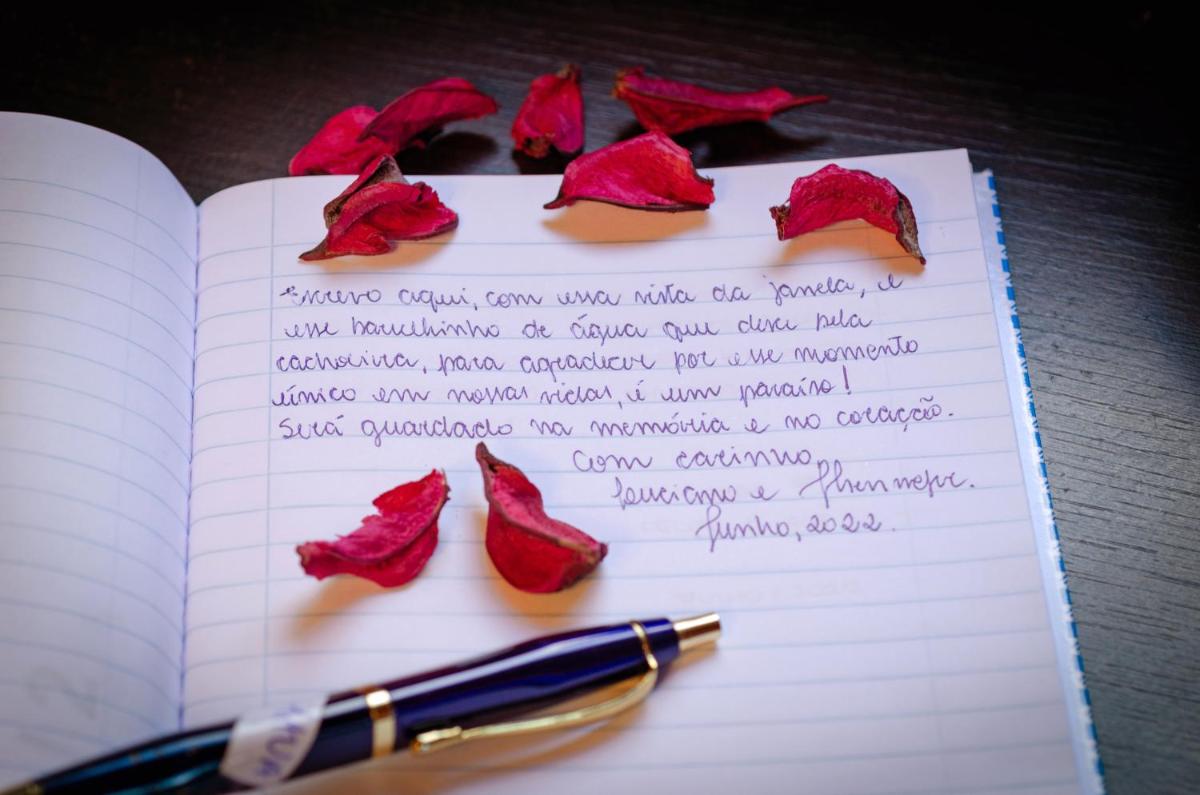 Escrevo aqui, com essa vista da janela, e
esse barulhinho de água que desce pela
cachoeira, para agradecer por esse momento
único em nossas vidas, é um paraíso!
Será guardado na memória e no coração.
Com carinho,
Luciano e
Junho, 2022.